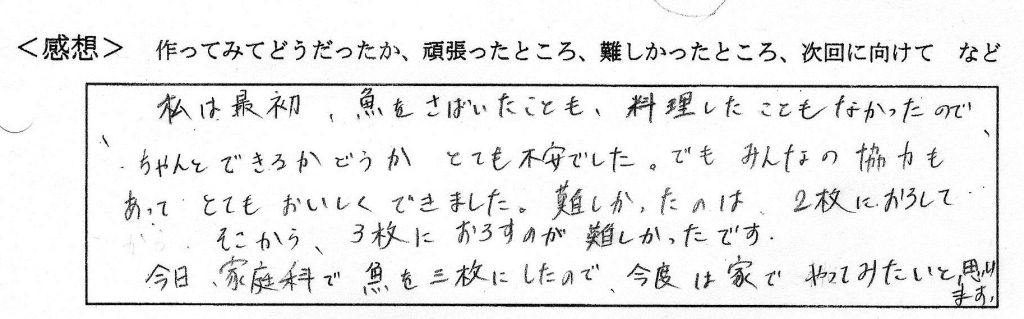 <感想> 作ってみてどうだったか、頑張ったところ、難しかったところ、次回に向けて など
私は最初、魚をさばいたことも、料理したこともなかったので、
ちゃんとできるかどうか とても不安でした。でも みんなの協力も
あって とても おいしく できました。難しかったのは、2枚におろして
そこから、3枚に おろすのが 難しかったです。
今日、家庭科で 魚を三枚にしたので、今度は家で やってみたいと思い
ます。